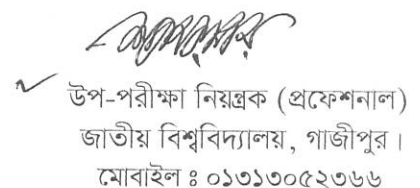 উপ-পরীক্ষা নিয়ন্ত্রক (প্রফেশনাল)
জাতীয় বিশ্ববিদ্যালয়, গাজীপুর।
মোবাইল ঃ ০১৩১৩০৫২৩৬৬